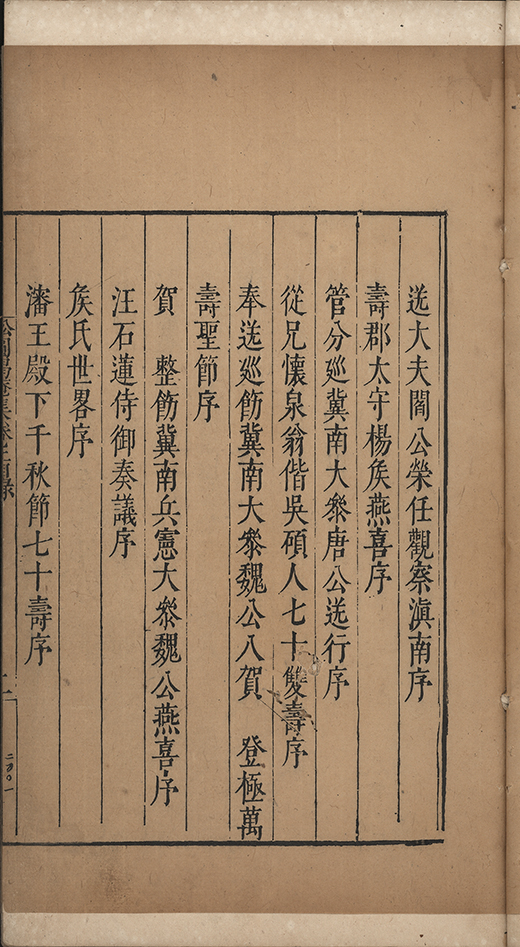 送大夫閻公榮任觀察滇南序
壽郡太守楊矦燕喜序
管分廵冀南大叅唐公送行序
從兄懷泉翁偕吳碩人七十雙壽序
奉送廵飭冀南大叅魏公入賀　登極萬
壽聖節序
賀　整飭冀南兵憲大叅魏公燕喜序
汪石蓮侍御奏議序
矦氏世畧序
瀋王殿下千秋節七十壽序